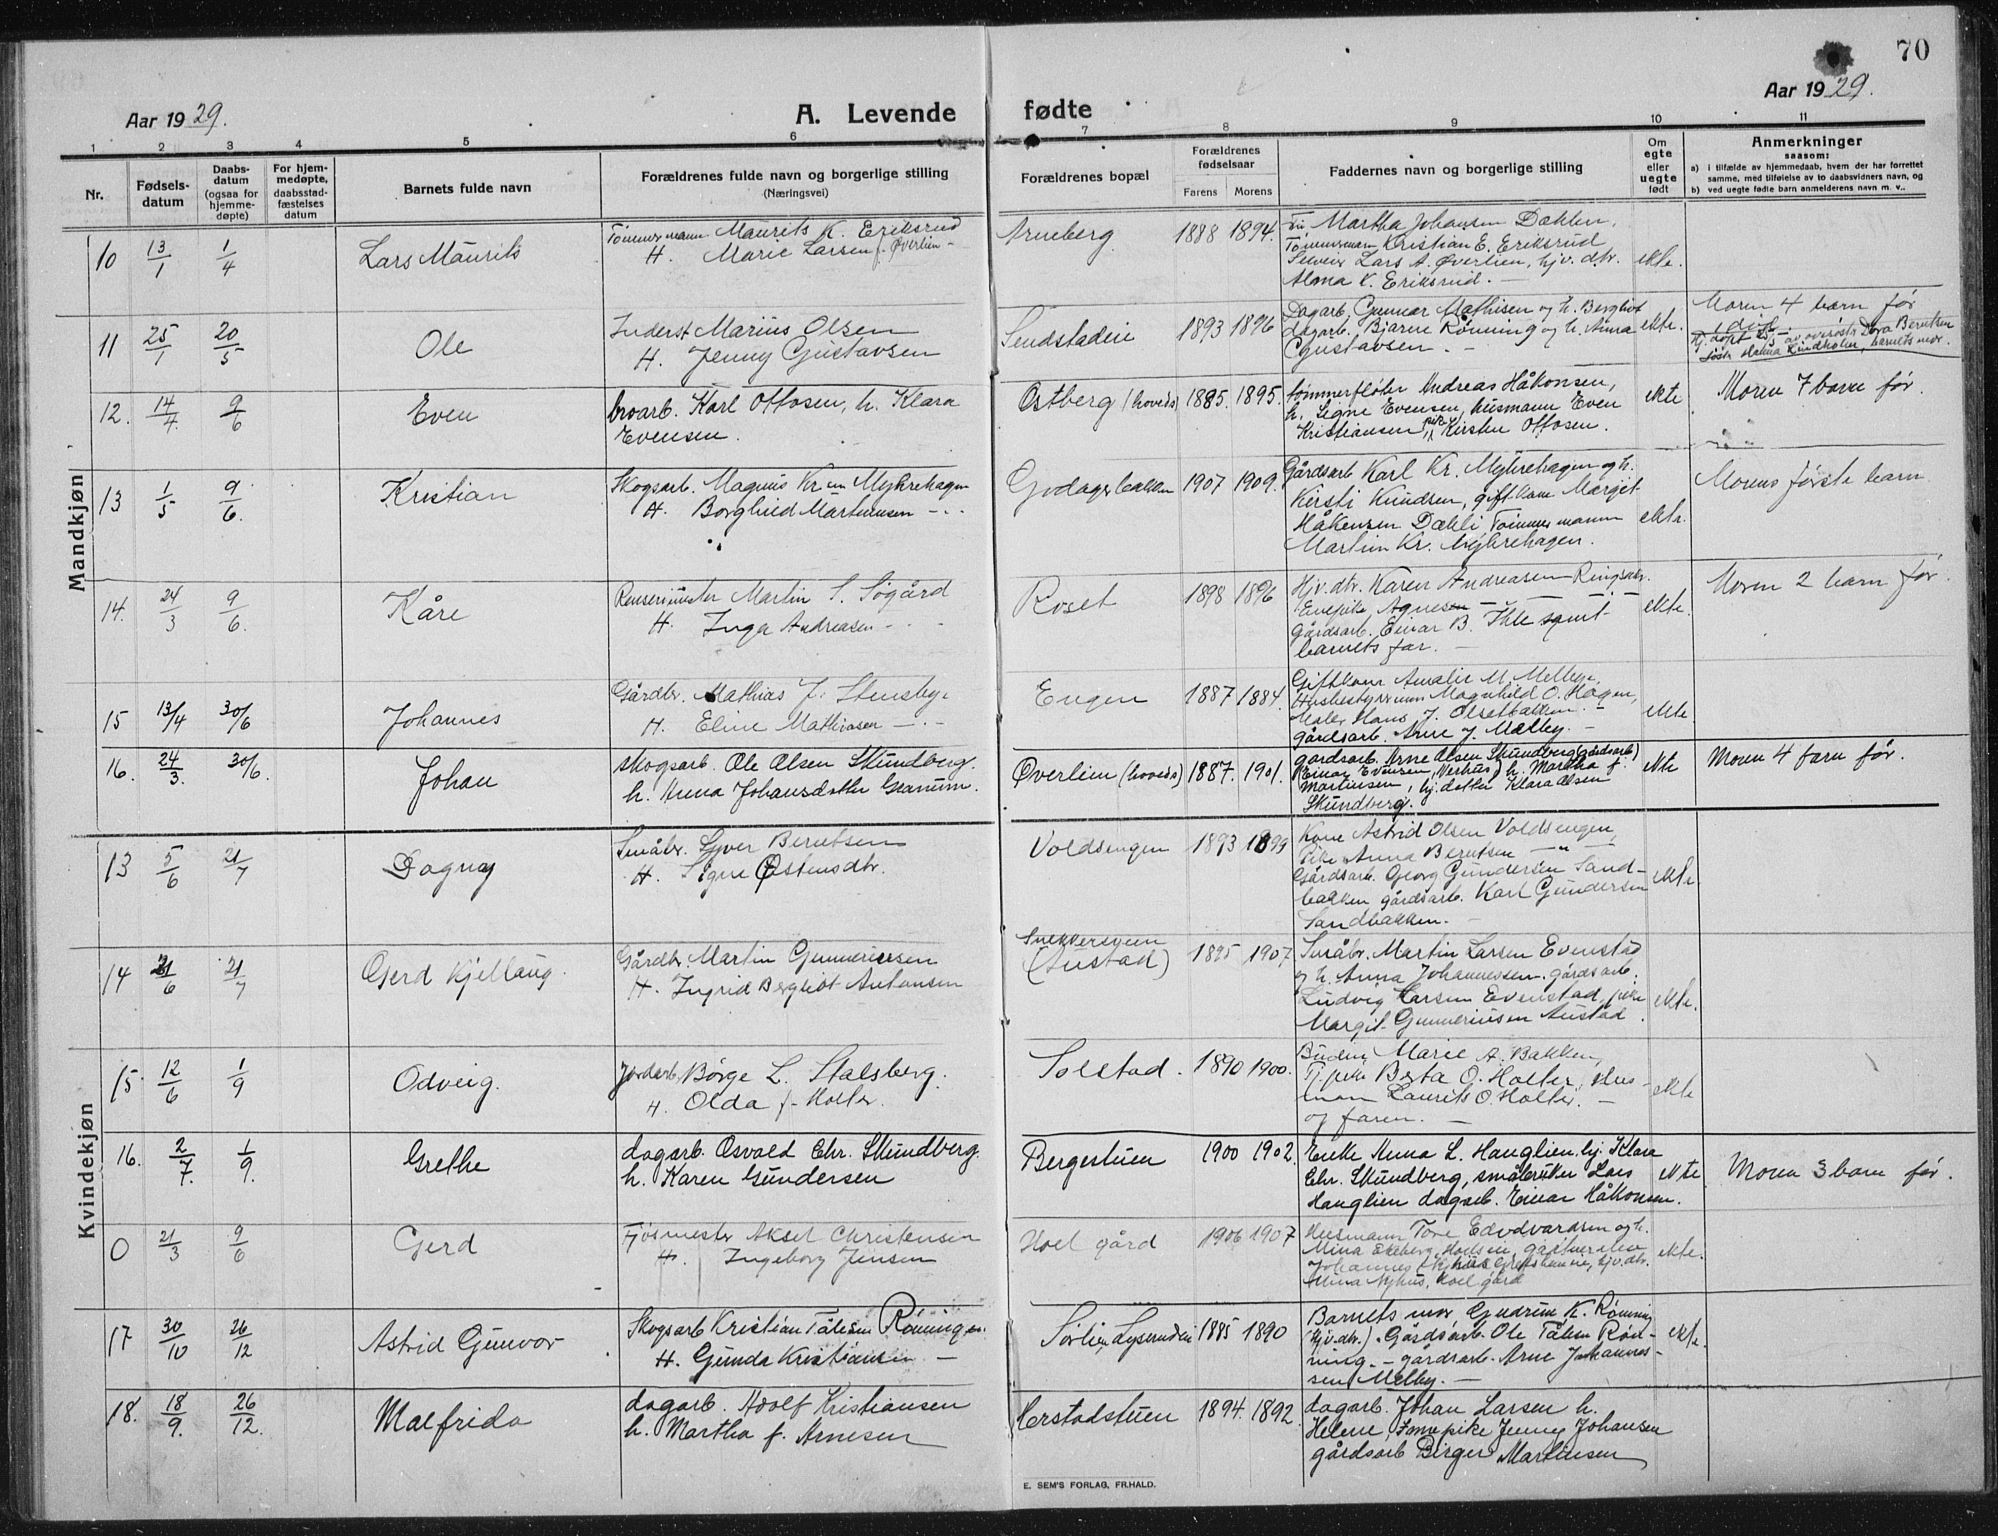 70
Aar 1929.
A. Levende
fødte
Aar 1929.
1 2 3 4 5 6 7 8 9 10 11
Nr.
Fødsels-
datum
Daabs-
datum
(ogsaa for
hjemme-
døpte)
For hjem-
medøpte,
daabsstad-
fæstelses
datum
Barnets fulde navn
Forældrenes fulde navn og borgerlige stilling
(Næringsvei)
Forældrenes bopæl
Forældrenes
fødselsaar
Farens Morens
Faddernes navn og borgerlige stilling
Om
egte
eller
uegte
født
Anmerkninger
saasom:
a) i tilfælde av hjemmedaab, hvem der har forrettet
samme, med tilføielse av to daabsvidners navn, og
b) ved uegte fødte barn anmelderens navn m. v..
Mandkjøn
10 13/1 1/4 Lars Maurits
Tømmermann Maurits K. Eriksrud
H. Marie Larsen f. Øverlien
Arneberg 1888 1894.
Fru Martha Johansen Dæhlen,
Tømmermann Kristian E. Eriksrud
Lars A. Øverlien, hjv. dtr.
Alma K. Eriksrud.
ekte.
11 25/1 20/5 Ole
Inderst Marius Olsen
H. Jenny Gustavsen
Sendstadeie 1893 1896
Dagarb. Gunnar Mathisen og h. Bergliot
dagarb. Bjarne Rønning og h. Anna
Gustavsen.
ekte.
Moren 4 barn før
Hj. døpt av oversøstr Dora Berntsen
12. 14/4 9/6 Even
broarb. Karl Ottosen, h. Klara
Evensen.
Østberg (hoveds) 1885. 1895.
tømmerfløter Andreas Håkonsen,
h. Signe Evensen, husmann Even
Kristiansen, pike Kirsten Ottosen.
ekte
Moren 7 barn før.
13 1/5 9/6. Kristian
Skogsarb. Magnus Kr.sen Myhrehagen
H. Borghild Martinsen
Godagerbakken 1907 1909.
Gårdsarb Karl Kr. Myhrehagen og h.
Kirsti Knudsen, gift kone Margit
Håkensen Dæhli Tømmermann
Martin Kr. Myhrehagen.
ekte.
Morens første barn.
14. 24/3 9/6. Kåre
Martin S. Søgård
H. Inga Andreasen
Roset 1898 1896
Hjv. dtr. Karen Andreasen Ringsakr.
Enepike Agnes
gårdsarb. Einar B. Ihle samt
barnets far.
ekte.
Moren 2 barn før.
15 13/4 30/6 Johannes
Gårdbr. Mathias J. Stensby.
H. Eline Mathiasen
Engen 1887 1884.
Giftkone Amalie M. Melbye,
Husbestyrerinne Magnhild O. Hagen,
Maler Hans J. Olsetbakken.
gårdsarb. Arne J. Melby.
ekte.
16. 24/3. 30/6. Johan
skogsarb. Ole Olsen Skundberg.
h. Anna Johansdatter Granum.
Øverlien (hoveds) 1887. 1901.
gårdsarb. Arne Olsen Skundberg (gårdsarb)
Einar Evensen, h. Martha f.
Martinsen, hj. datter Klara Olsen
Skundberg.
ekte
Moren 4 barn før.
Kvindekjøn
13 5/6 21/7 Dagny
Småbr. Syver Berntsen
H. Signe Østensdtr.
Voldsengen 1893 1899
Kone Astrid Olsen Voldsengen
Pike Anna Berntsen
Gårdsarb. Georg Gundersen Sand-
bakken, gårdsarb. Karl Gundersen
Sandbakken.
ekte.
14 21/6 21/7 Gerd Kjellaug.
Gårdbr. Martin Gunneriusen
H. Ingrid Bergliot Antonsen
Snekkersveen
(Austad) 1895 1907
Småbr. Martin Larsen Evenstad
og h. Anna Johannessen. gårdsarb.
Ludvig Larsen Evenstad, pike
Margit Gunneriusen Austad.
ekte.
15. 12/6 1/9 Odveig.
Jordarb. Børge L. Stalsberg.
H. Olda f. Holter.
Solstad. 1890 1900.
Marie A. Bakken,
Tj.pike Berta O. Holter, Hus-
mann Laurits O. Holter.
og faren.
ekte
16. 2/7. 1/9. Grethe
dagarb. Osvald Chr. Skundberg.
h. Karen Gundersen
Bergestuen 1900 1902.
Enke Anna L. Hauglien, hj. Klara
Chr. Skundberg, småbruker Lars
Hauglien dagarb. Einar Håkonsen.
ekte
Moren 3 barn før.
0 21/3 9/6 Gerd
Fjøsmester Aksel Christensen
H. Ingeborg Jensen
Hoel gård 1906 1907
Husmann Tore Edvardsen og h.
Mina Ekeberg, Hoelsen, gartnerelev
Johannes Nyhus Greftsheim, hjv. dtr.
Mina Nyhus, Hoel gård
ekte.
17 30/10 26/12 Astrid Gunvor
Skogsarb Kristian Tålesen Rønningen.
H. Gunda Kristiansen
Sørlien, Lyserudeie 1885 1890
Barnets mor, Gudrun K. Rønning
(hjv. dtr.). Gårdsarb. Ole Tålesen Røn-
ning. – gårdsarb. Arne Johannes-
sen Melby.
ekte.
18. 18/9. 26/12. Malfrida
dagarb. Adolf Kristiansen
h. Martha f. Arnesen
Herstadstuen 1894. 1892.
dagarb. Johan Larsen h.
Helene, pike Jenny Johansen
gårdsarb Birger Martinsen
E. SEM'S FORLAG, FR.HALD.